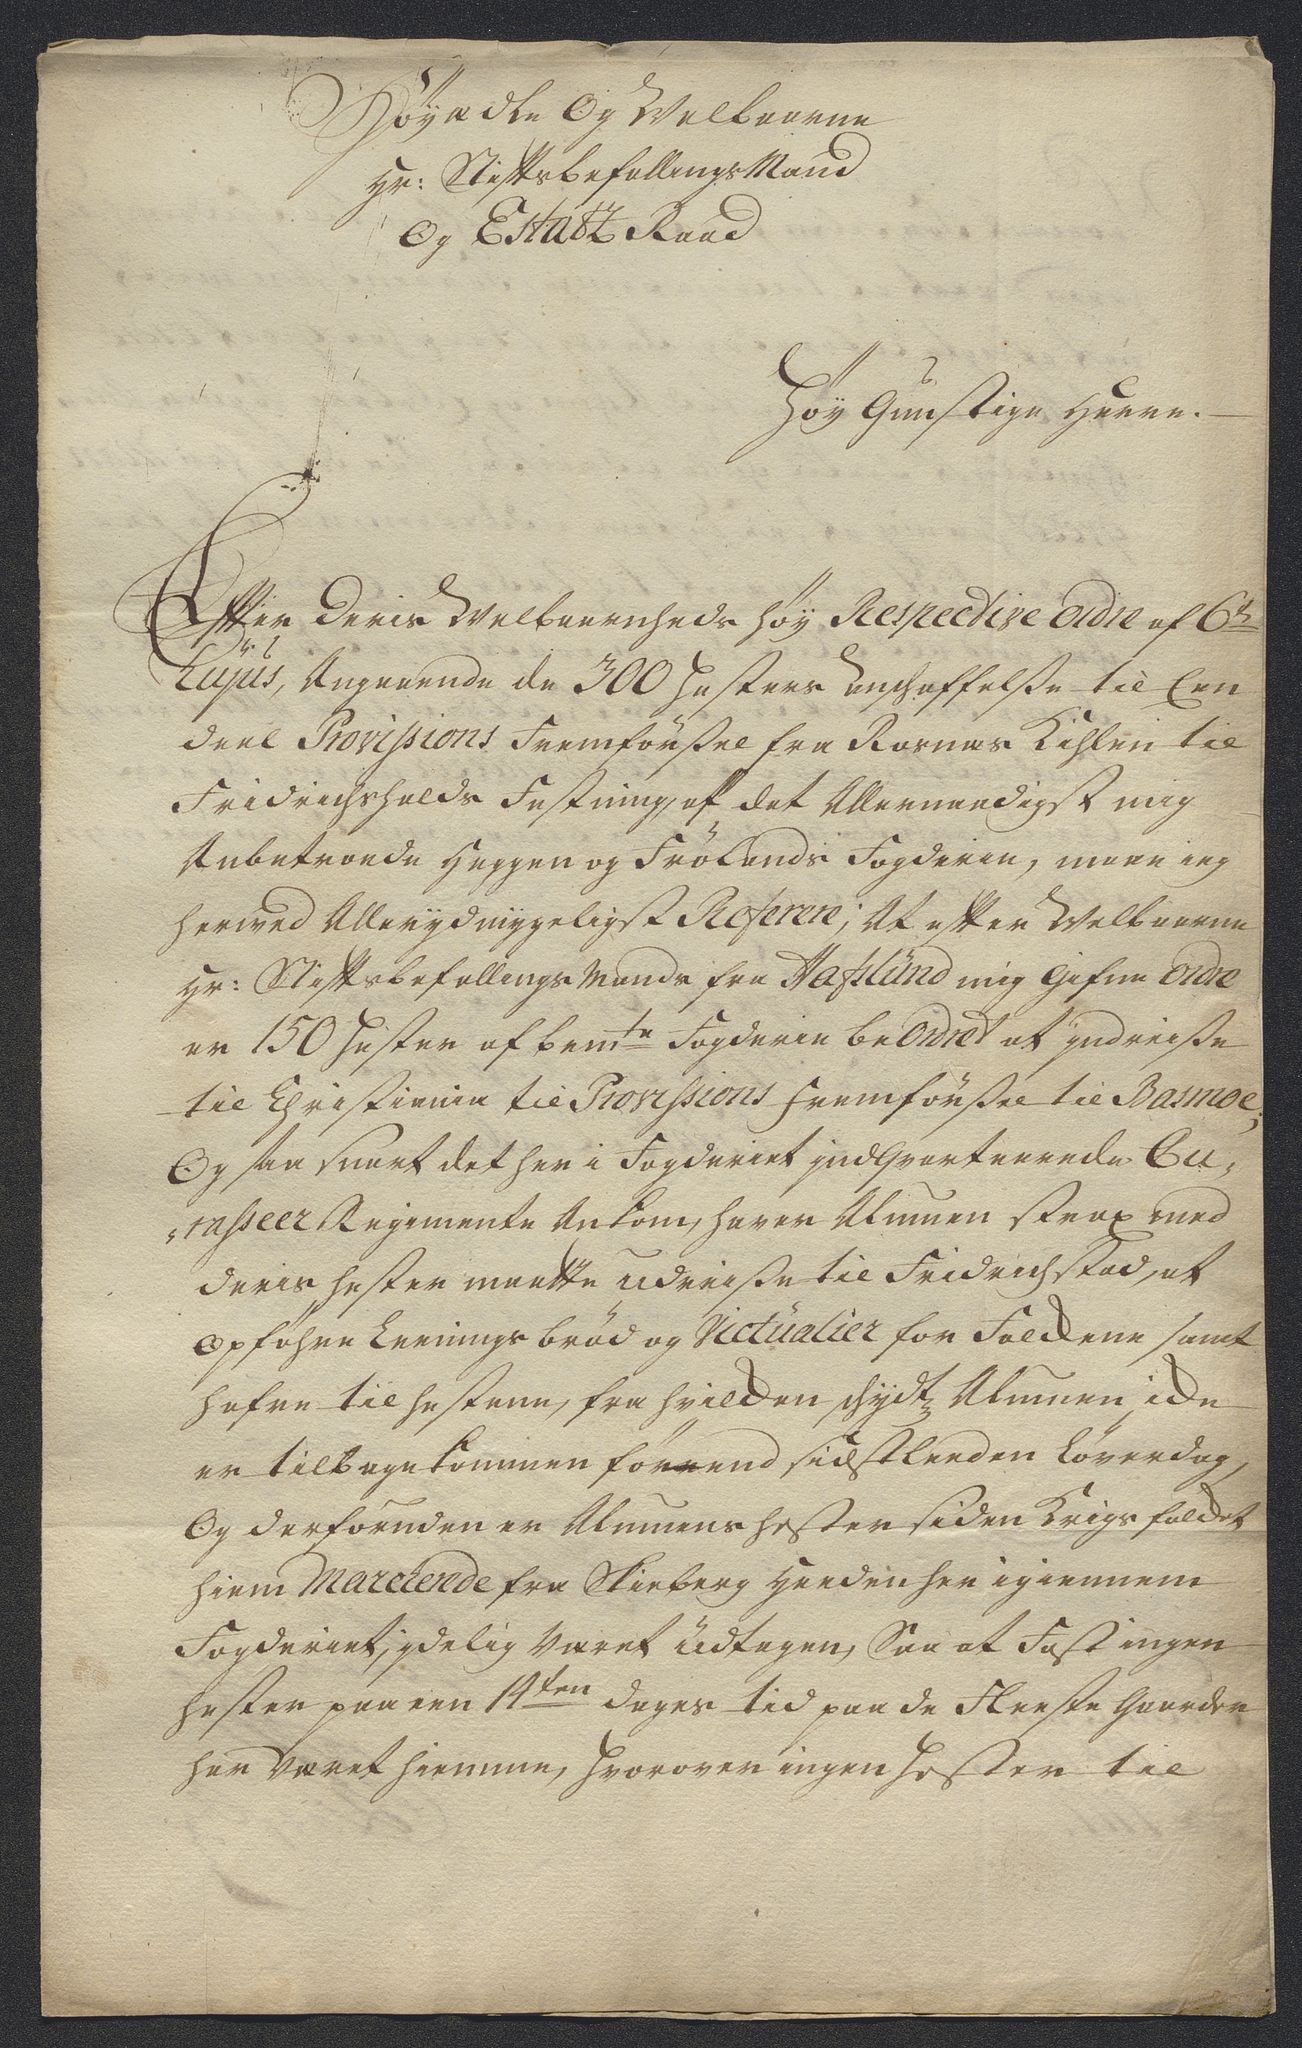 Høyædle Og Welbaarne
Hr: StiftsbefallingsMand
Og Estatz Raad
Høy Gunstige Herre.
Efter Deris Welbaarenheds høy Respective Ordre af 6te
hujus, Angaaende de 300 hesters anschaffelsse til Een
deel Provissions Fremførssel fra Rosnæs Kihlen til
Fridrichshalds Festning, af det Allernaadigst mig
Anbetroede Heggen og Frølands Fogderie, maae ieg
herved Allerydmygeligst Referere; At efter Welbaarne
Hr: StiftsbefallingsMands fra Hafslund mig Gifne Ordre
er 150 hester af bemte Fogderie beOrdret at yndreisse
til Christiania til Provissions Fremførssel til Basmoe;
Og saa snart det her i Fogderiet yndqvarteerede Cu-
-rasseer Regimente Ankom, haver Almuen strax med
deris hester maatte udreisse til Fridrichstad, at
opføhre Leeningsbrød og Victualier for Folckene samt
hafre til hestene, fra hvilcken schydtz Almuen icke
er tilbagekommen førrend sidstleeden Løverdag,
Og derforuden er Almuens hester siden Krigsfolcket
hiem Marcherede fra Skieberg Heeden her igiennem
Fogderiet, ydelig Været Udtagen, Saa at Fast ingen
hester paa een 14ten dages tid paa de Fleeste Gaarder
har Været hiemme, hvorover ingen hester til